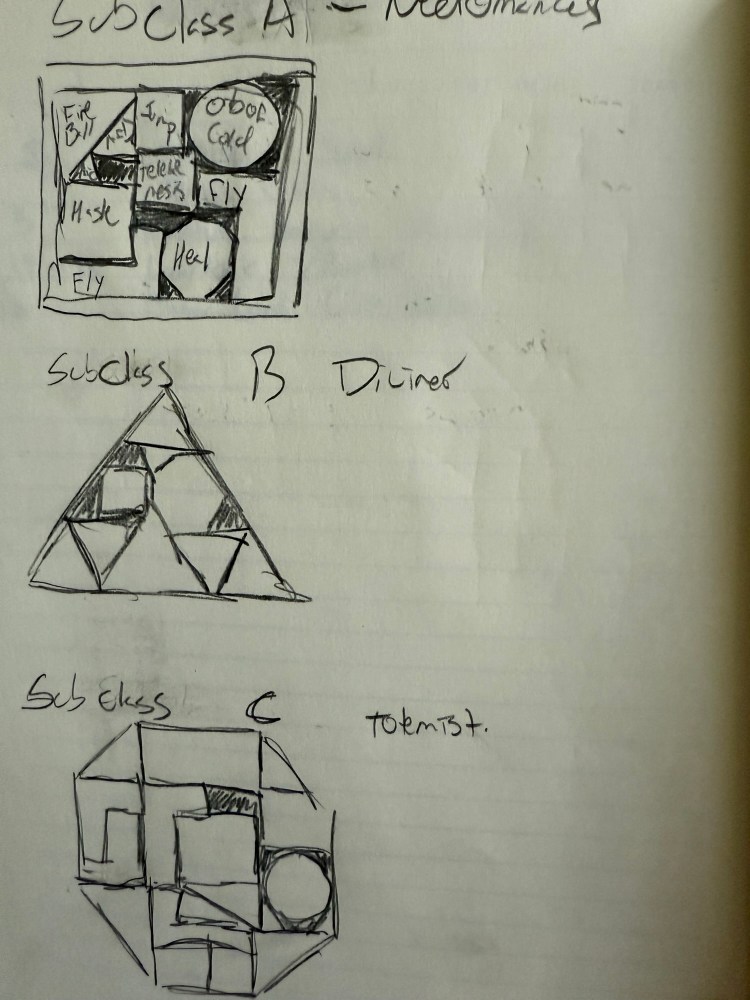 Subclass A - Necromancer
Fire
Ball
Imp
Obof
Cold
Teleke
nesis
Fly
Mask
Heal
Fly
Subclass B Diviner
Subclass C Totemist.